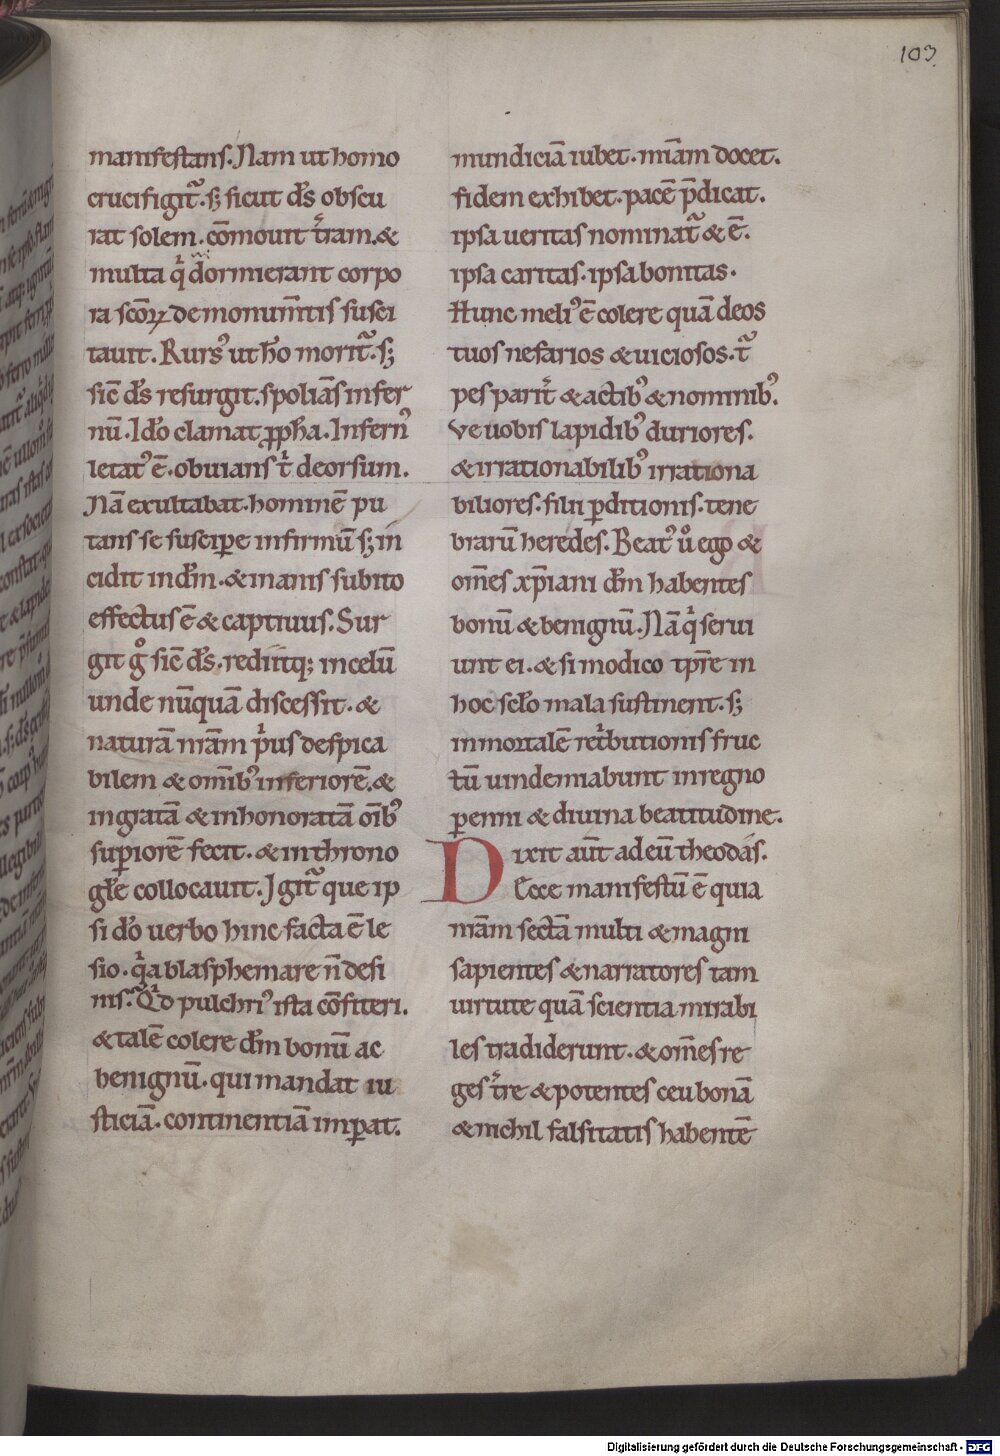 103
manifestans. Nam ut homo
crucifigit᷑. sꝫ sicut d̄s obscu
rat solem. cōmouit t̄ram. &
multa q̄ dormierant corpo
ra sc̄oꝝ de monum̄tis susci
tauit. Rursꝰ ut ho͞ morit᷑. sꝫ
sic̄ d̄s resurgit. spoliās infer
nū. Ido͞ clamat ꝓph̄a. Infernꝰ
letatꝰ ē. obuians t̄ deorsum.
Nā exultabat. hominē pu
tans se suscipe infirmū sꝫ in
cidit in dm̄. & inanis subito
effectus ē & captiuus. Sur
git gͦ sic̄ d̄s. rediitqꝫ in celū
unde nūquā discessit. &
naturā nr̄am pͥus despica
bilem & om̄ibꝰ inferiorē. &
ingratā & inhonoratā oībꝰ
suꝑiorē fecit. & in throno
gl̄e collocauit. Igit᷑ que ip
si do͞ uerbo hinc facta ē le
sio. qͥa blasphemare n̄ desi
nis. Qͥd pulchriꝰ ista cōfiteri.
& talē colere dm̄ bonū ac
benignū. qui mandat iu
sticiā. continentiā imꝑat.
mundiciā iubet. miām docet.
fidem exhibet. pacē p̄dicat.
ipsa ueritas nominat᷑ & ē.
ipsa caritas. ipsa bonitas.
Hunc meliꝰ ē colere quā deos
tuos nefarios & uiciosos. t᷑
pes parit̄ & actibꝰ & nominibꝰ.
Ve uobis lapidibꝰ duriores.
& irrationabilibꝰ irrationa
biliores. filii ꝑditionis. tene
brarū heredes. Beatꝰ uͦ ego &
om̄es xp̄iani dm̄ habentes
bonū & benignū. Nā qͥ serui
unt ei. & si modico tp̄re in
hoc sclo͞ mala sustinent. sꝫ
immortalē ret̄butionis fruc
tū uindemiabunt in regno
ꝑenni & diuina beatitudine.
Dixit aūt ad eū theodas.
Ecce manifestū ē quia
nr̄am sectā multi & magni
sapientes & narratores tam
uirtute quā scientia mirabi
les tradiderunt. & om̄es re
ges t̄re & potentes ceu bonā
& nichil falsitatis habentē
Digitalisierung gefördert durch die Deutsche Forschungsgemeinschaft - DFG